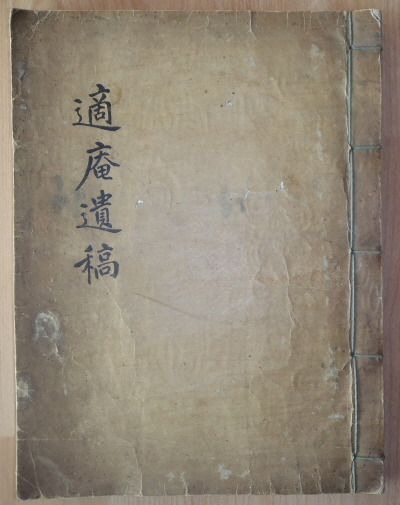 適庵遺稿